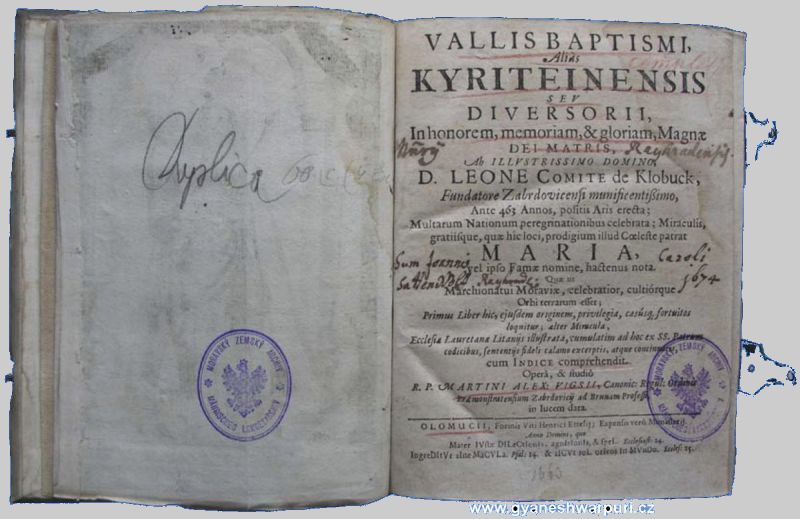 Duplica
VALLIS BAPTISMI,
Alias
KYRITEINENSIS
SEV
DIVERSORII,
In honorem, memoriam, & gloriam, Magnæ
DEI MATRIS,
Ab ILLVSTRISSIMO DOMINO,
D. LEONE COMITE de Klobuck,
Fundatore Zabrdovicensi munificentissimo,
Ante 463 Annos, positis Aris erecta;
Multarum Nationum peregrinationibus celebrata; Miraculis,
gratiisque, quæ hic loci, prodigium illud Cœleste patrat
MARIA,
vel ipso Famæ nomine, hactenus nota.
Quæ ut
Marchionatui Moraviæ, celebratior, cultiorque
Orbi terrarum esset;
Primus Liber hic, ejusdem originem, privilegia, casusq, fortuitos
loquitur; alter Miracula,
Ecclesiæ Lauretanæ Litanijs illustrata, cumulatim ad hoc ex SS. Patrum
codicibus, sententijs fideli calamo excerptis, atque continuatis,
cum INDICE comprehendit.
Operâ, & studiô
R. P. MARTINI ALEX: VIGSII, Canonic: Regul: Ordinis
Præmonstratensium Zabrdovicij ad Brunam Professi,
in lucem data.
OLOMUCII, Formis Viti Henrici Ettelij; Expenso verò Monasterij.
Anno Domini, quo
Mater IVstæ DILeCtIonIs, agnItIonIs, & speI. Ecclesiast: 24.
IngreDItVr sIne MaCVLa. Psal: 14. & sICVt soL orIens In MVnDo. Eccles: 25.
Rayhradensis.
Sum Joannis
Caroli
1674
1663
MORAVSKÝ ZEMSKÝ ARCHIV
MÄHRISCHES LANDESARCHIV
www.gyaneshwarpuri.cz